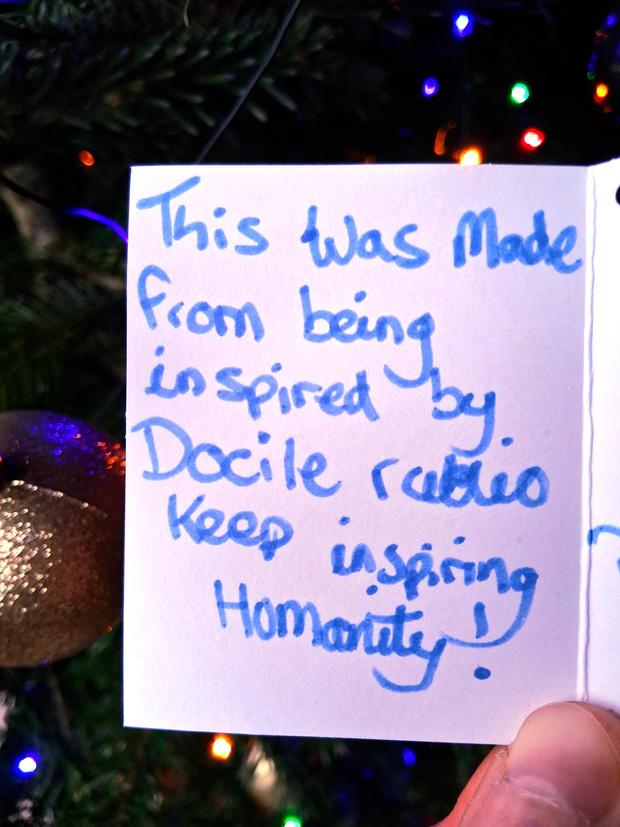 This was Made
from being
inspired by
Docile radio
Keep inspiring
Homanity!